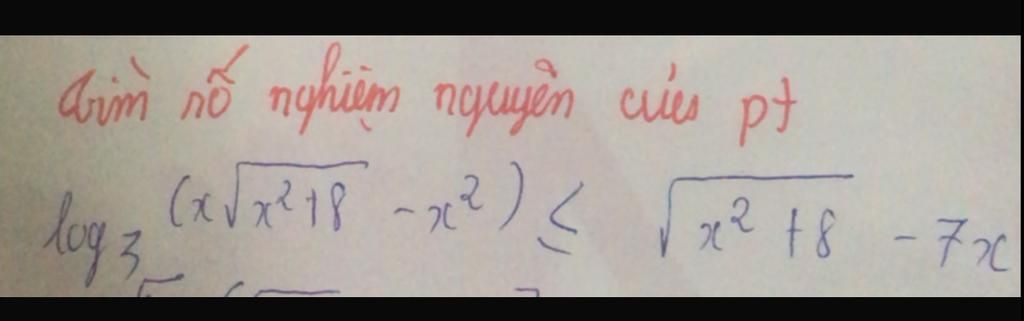 Tìm số nghiệm nguyên của pt
log₃ (x√(x²+8) - x²) ≤ √(x²+8) - 7x